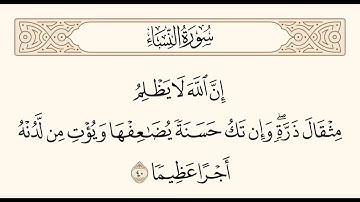 سُورَةُ النِّسَاءِ
إِنَّ ٱللَّهَ لَا يَظْلِمُ
مِثْقَالَ ذَرَّةٍۖ وَإِن تَكُ حَسَنَةً يُضَٰعِفْهَا وَيُؤْتِ مِن لَّدُنْهُ
أَجْرًا عَظِيمًا ٤٠